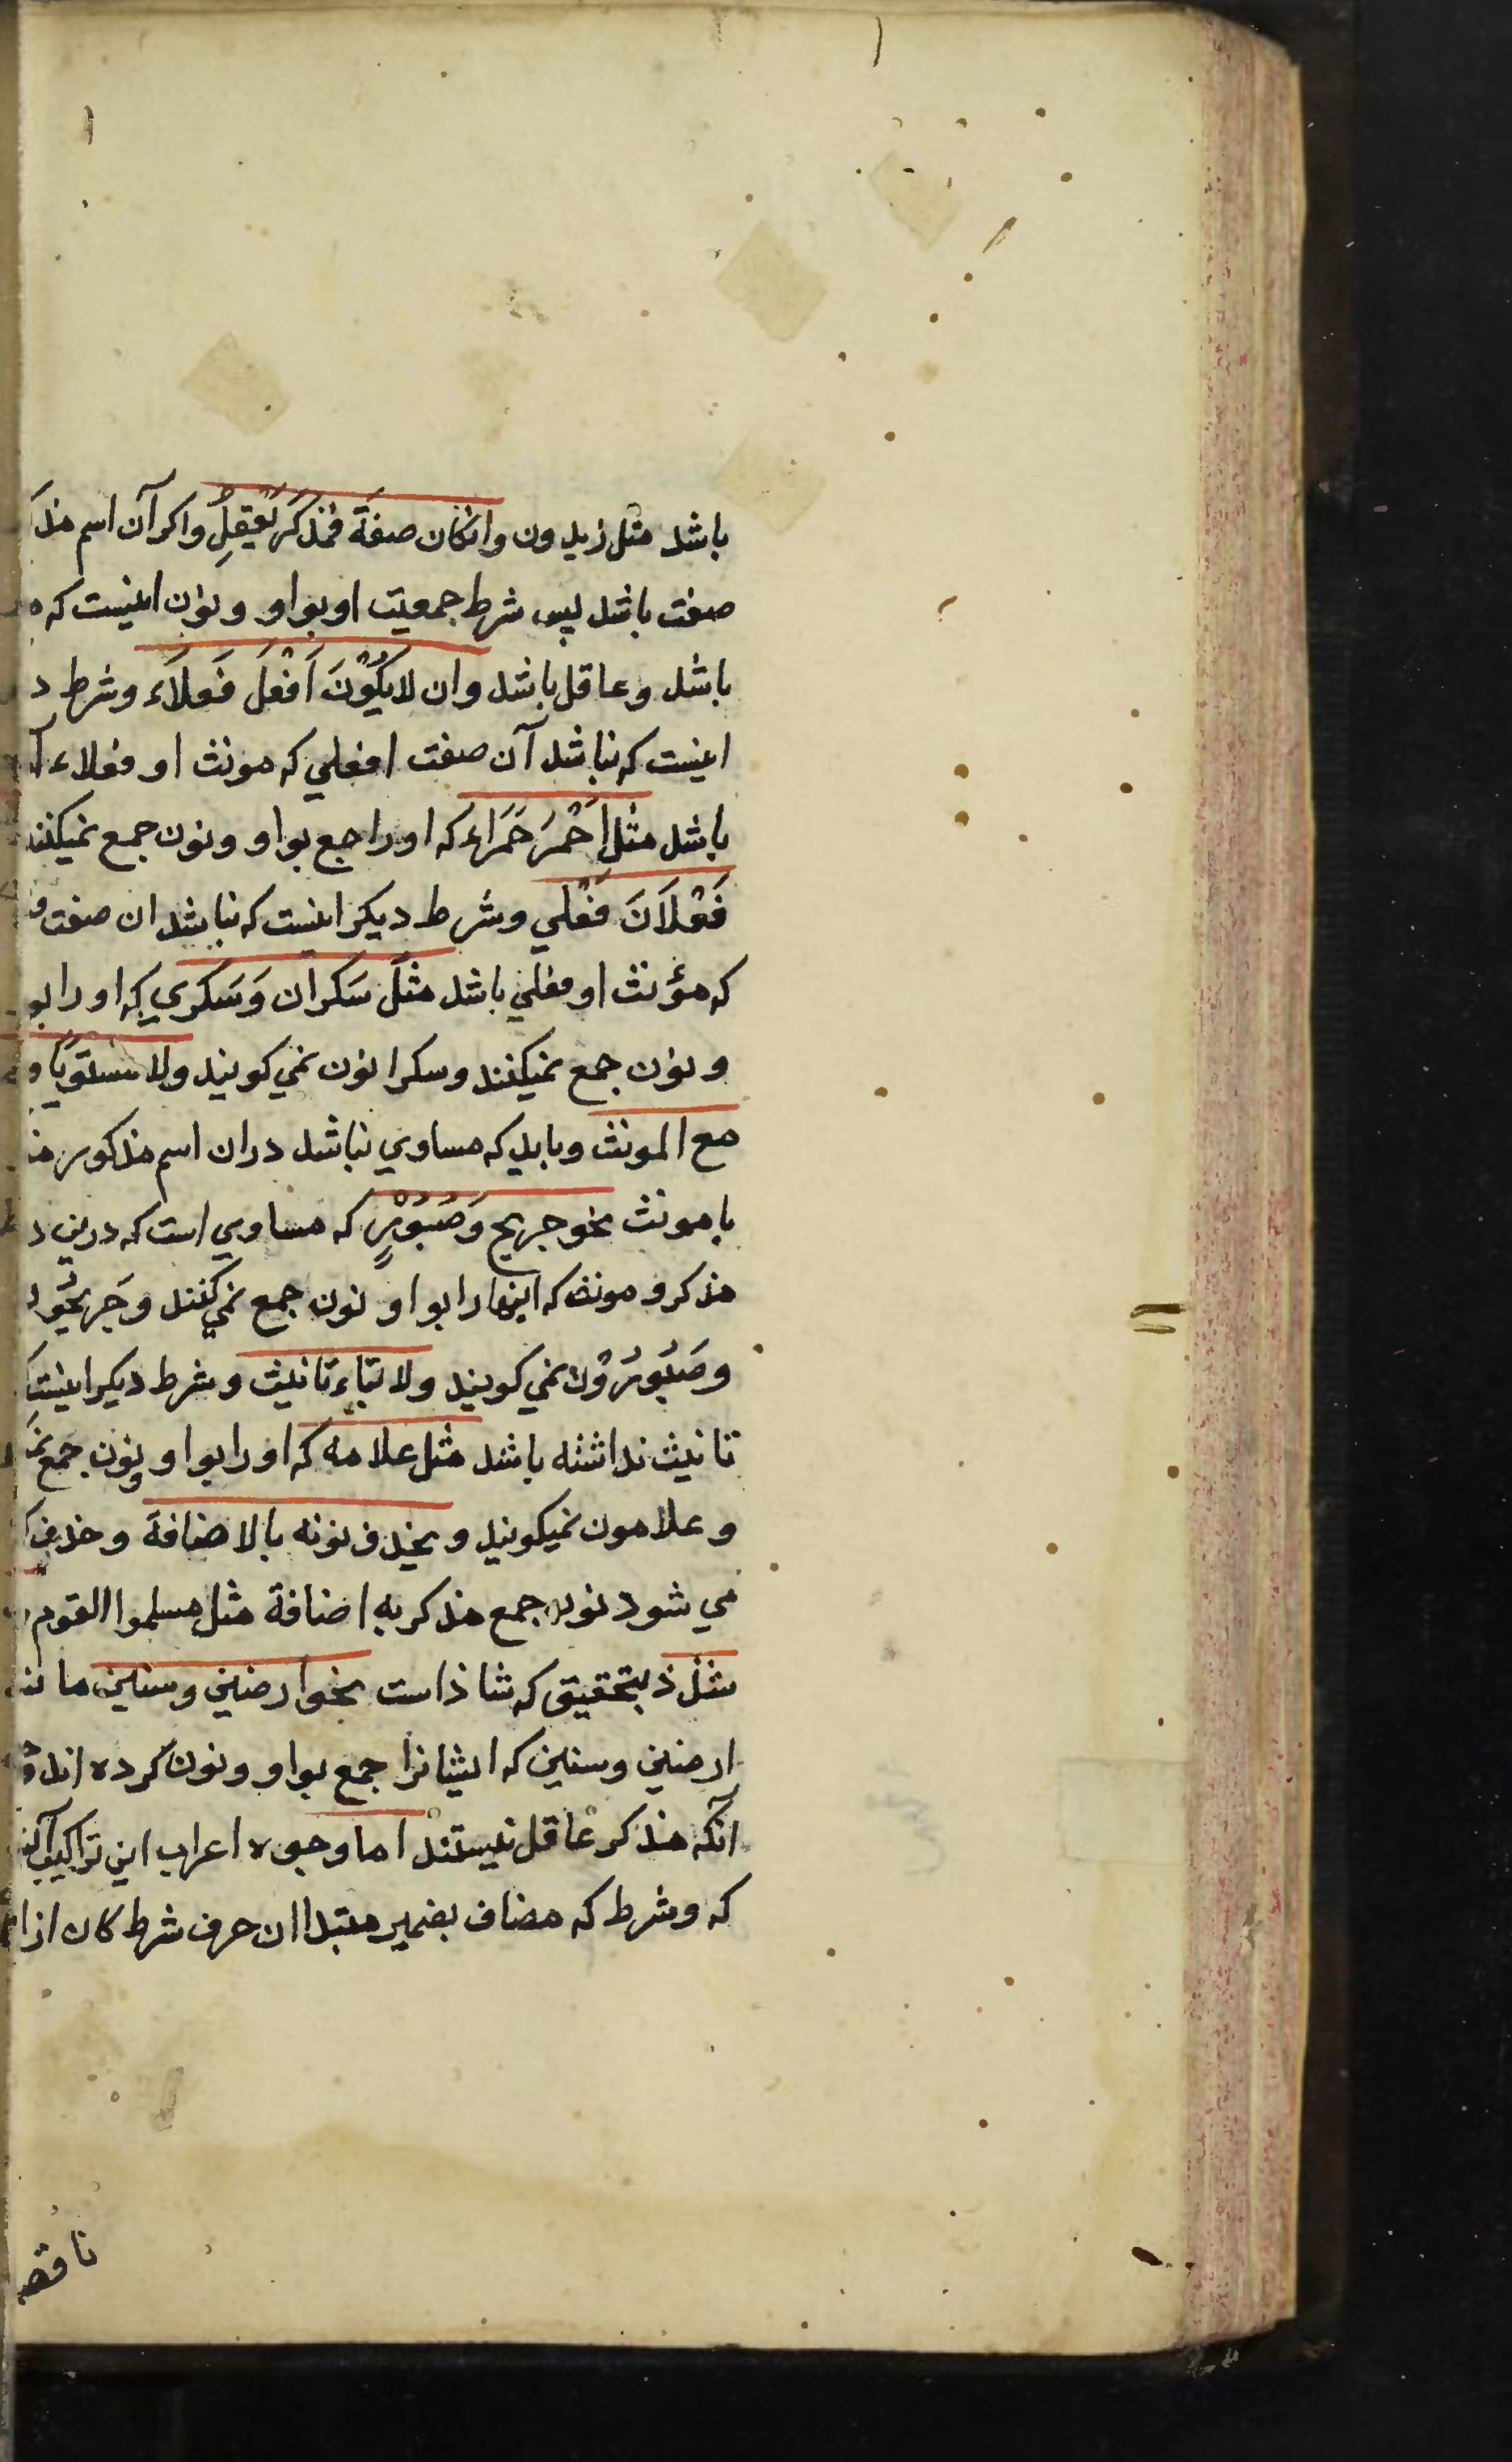 باشد مثل زیدون وانکان صفةً فمُذکَّرٌ یَعْقِلُ واکر آن اسم
صفت باشد پس شرط جمعیت او بواو ونون اینست که
باشد وعاقل باشد وان لایَکُوْنَ اَفْعَلَ فَعلَاَء وشرط
اینست که نباشد آن صفت افعلي که مونث او فعلاء
باشد مثل اَحْمَرَ حَمَراء که اورا جمع بواو ونون جمع نمیکنند
فَعْلَاَنَ فَعْلي وشرط دیکر اینست که نباشد ان صفت
که مؤنث او فعلي باشد مثل سَکران وَسَکَرَي که اورا
ونون جمع نمیکنند وسکرانون نمي کویند ولا مستویًا
مع المونث وباید که مساوي نباشد دران اسم مذکور
با مونث نحو جریح وَصَبُوْرٍ که مساوي است که درین
مذکر و مونث که اینها را بواو نون جمع نمي کنند وَجَریحُو
وصَبُوَرُوْن نمي کویند ولا بتاء تانیث وشرط دیکر اینست
تانیث نداشته باشد مثل علامه که اورا بواو ونون جمع
وعلامون نمیکویند ویحذف نونه بالاضافة وحذف
مي شود نون جمع مذکر به اضافة مثل مسلموا القوم
شذّ ذ بتحقیق که شاذ است نحو ارضین وسنین
ارضین وسنین که ایشانرا جمع بواو ونون کرده اند
انکه مذکر عاقل نیستند اما وجوه اعراب این تراکیب
که وشرط که مضاف بضمیر مبتدا ان حرف شرط کان